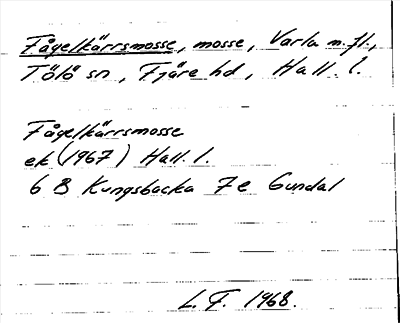 Fågelkärrsmosse, mosse, Varla m.fl.,
Tölö sn, Fjäre hd, Hall. l.
Fågelkärrsmosse
ek (1967) Hall. l.
6 B Kungsbacka 7e Gundal
L.F. 1968.